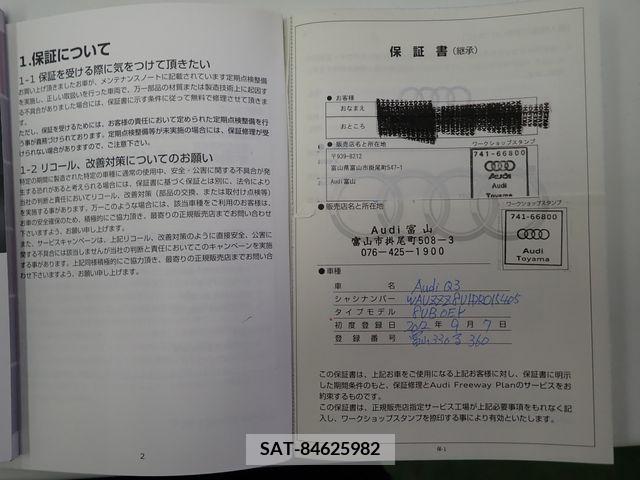 1.保証について
1-1 保証を受ける際に気をつけて頂きたい
お買い上げ頂きましたお車が、メンテナンスノートに記載されています定期点検整備
を実施し、正しい取扱いを行った車両で、万一部品の材質または製造技術上に起因す
る不具合がありました場合には、保証書に示す条件に従って無料で修理させて頂きま
す。
ただし、保証を受けるためには、お客様の責任において定められた定期点検整備を行
う事が義務づけられております。定期点検整備等が未実施の場合には、保証修理が受
けられない場合がありますので、ご注意下さい。
1-2 リコール、改善対策についてのお願い
特定の期間に製造された特定の車種に通常の使用中、安全・公害に関する不具合が発
生する恐れがあると考えられる場合には、保証書に基づく保証とは別に、法令により
当社の判断と責任においてリコール、改善対策（部品の交換、または取付力の検等）
を実施する事があります。万一このような場合には、該当車種をご利用のお客様は、
お車の安全確保のため、積極的にご協力頂き、最寄りの正規販売店までお問い合わせ
下さいますよう、お願い申し上げます。
また、サービスキャンペーンは、上記リコール、改善対策のように直接安全、公害に
関する不具合には該当しませんが当社の判断と責任においてこのキャンペーンを実施
する事があります。上記同様積極的にご協力頂き、最寄りの正規販売店までお問い合
わせ下さいますよう、お願い申し上げます。
2
保証書(継承)
● お客様
おなまえ
おところ
● 販売店名と所在地
ワークショップスタンプ
〒939-8212
富山県富山市掛尾町547-1
Audi 富山
741-66800
Audi
Toyama
● 販売店名と所在地
ワークショップスタンプ
Audi 富山
富山市掛尾町508-3
076-425-1900
741-66800
Audi
Toyama
● 車種
車名 Audi Q3
シャシナンバー WAUZZZ8U1DR015405
タイプモデル 8UB0EY
初度登録日 2012年9月7日
登録番号 富山330る360
この保証書は、上記お車をご使用になる上記お客様に対し、保証書に明示
した期間条件のもと、保証修理とAudi Freeway Planのサービスをお
約束するものです。
この保証書は、正規販売店指定サービス工場が上記必要事項をもれなく記
入し、ワークショップスタンプを捺印する事により有効といたします。
保-1
SAT-84625982